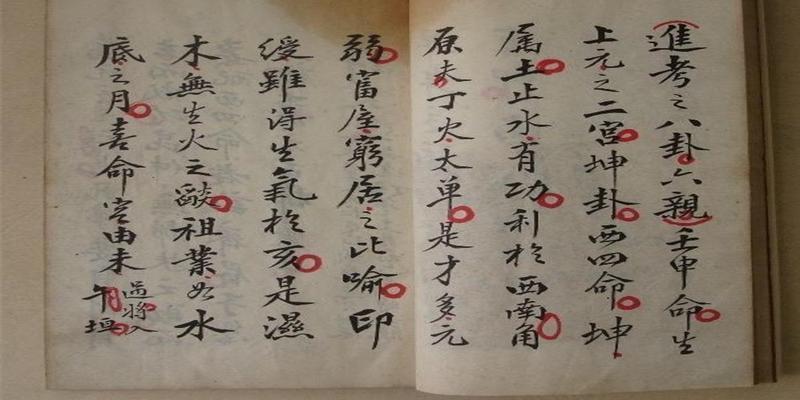 進考之八卦六親壬申命生
上元之二宮坤卦西四命坤
属土止水有功利於西南角
原夫丁火太单是才多元
弱富屋窮居之比喻印
绶雖得生氣於亥是濕
木無生火之燄祖業如水
底之月喜命宮由未
過將入
午垣